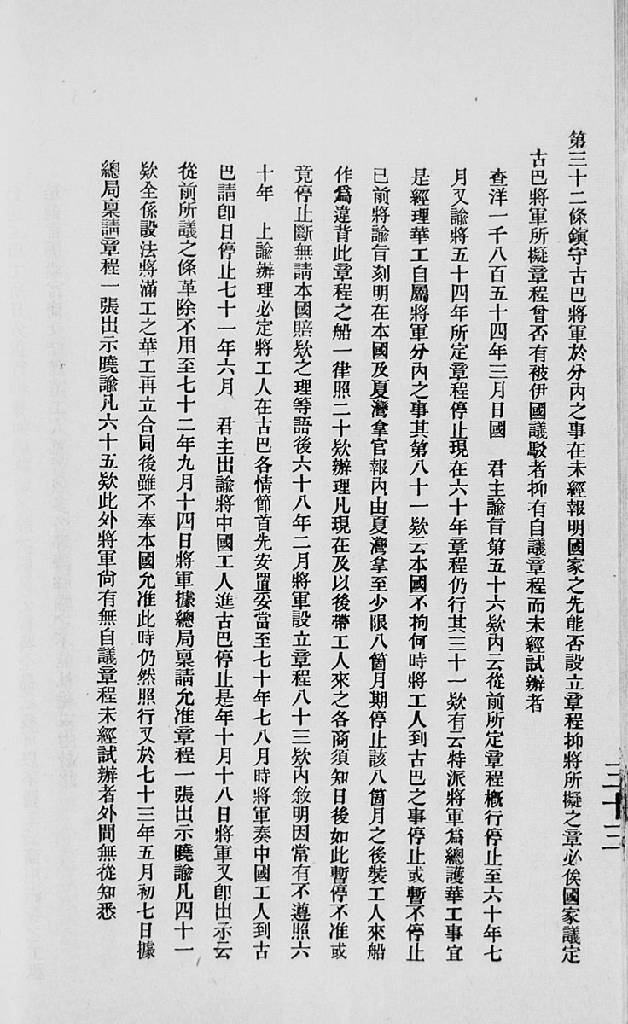 第三十二條鎮守古巴將軍於分內之事在未經報明國家之先能否設立章程抑將所擬之章必俟國家議定
古巴將軍所擬章程曾否有被伊國議駁者抑有自議章程而未經試辦者
查洋一千八百五十四年三月日國　君主諭旨第五十六欵內云從前所定章程概行停止至六十年七
月又諭將五十四年所定章程停止現在六十年章程仍行其三十一欵有云特派將軍爲總護華工事宜
是經理華工自屬將軍分內之事其第八十一欵云本國不拘何時將工人到古巴之事停止或暫不停止
已前將諭旨刻明在本國及夏灣拿官報內由夏灣拿至少限八箇月期停止該八箇月之後裝工人來船
作爲違背此章程之船一律照二十欵辦理凡現在及以後帶工人來之各商須知日後如此暫停不准或
竟停止斷無請本國賠欵之理等語後六十八年二月將軍設立章程八十三欵內敘明因當有不遵照六
十年　上諭辦理必定將工人在古巴各情節首先安置妥當至七十年七八月時將軍奏中國工人到古
巴請卽日停止七十一年六月　君主出諭將中國工人進古巴停止是年十月十八日將軍又卽出示云
從前所議之條革除不用至七十二年九月十四日將軍據總局稟請允准章程一張出示曉諭凡四十一
欵全係設法將滿工之華工再立合同後雖不奉本國允准此時仍然照行又於七十三年五月初七日據
總局稟請章程一張出示曉諭凡六十五欵此外將軍尙有無自議章程未經試辦者外間無從知悉
三十三